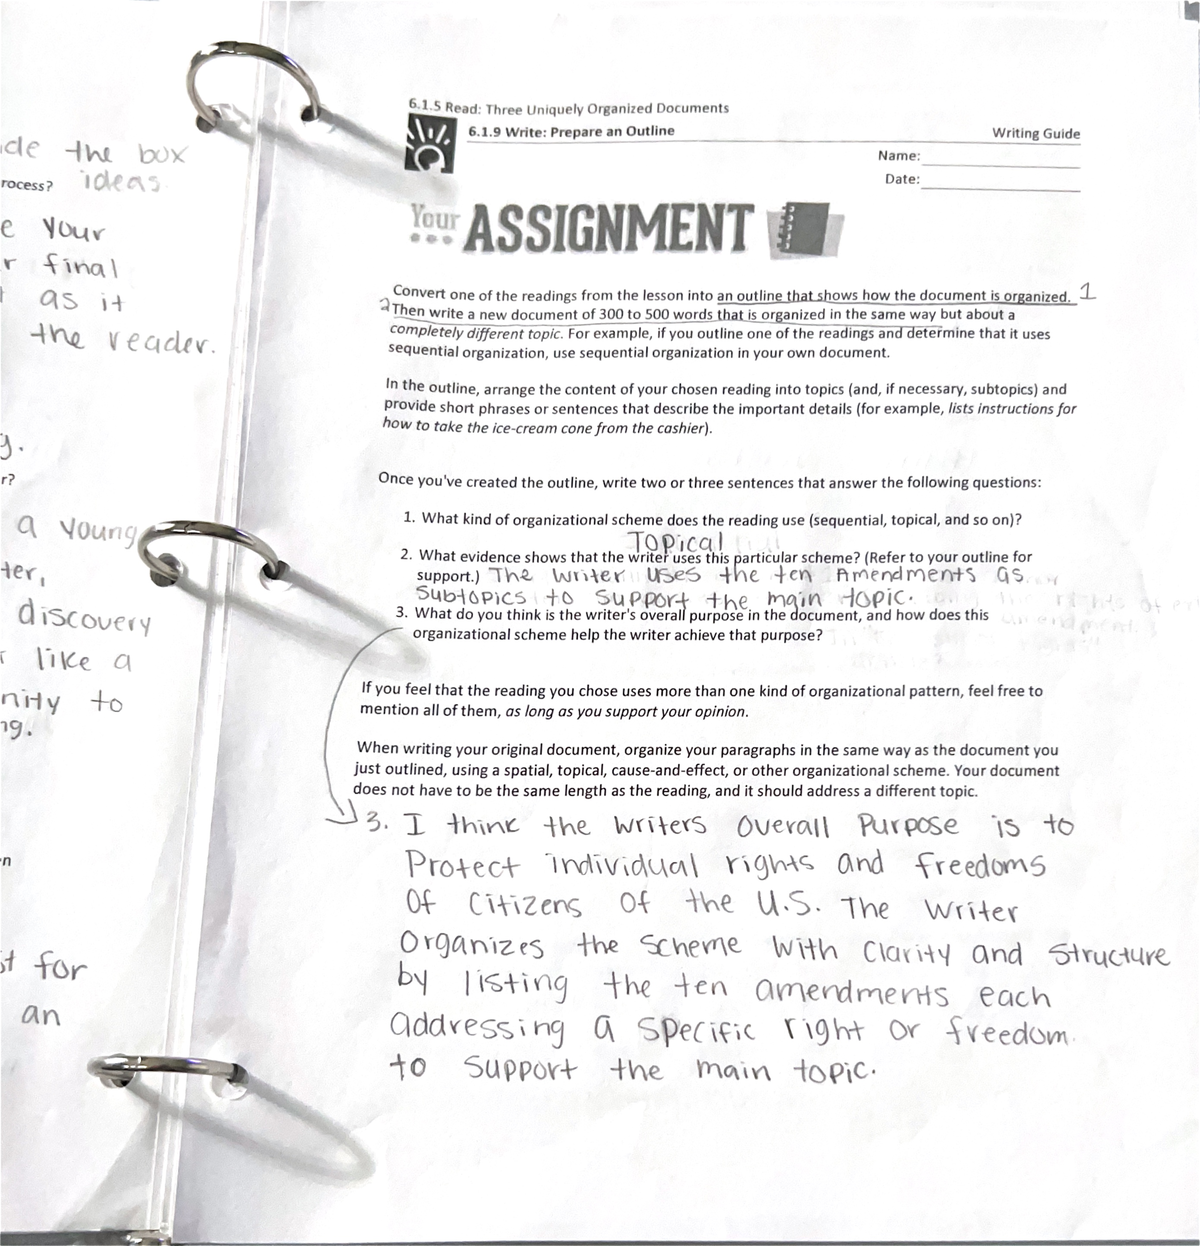 ide the box
rocess? ideas.
e your
r final
as it
the reader.
g.
r?
a young
ter,
discovery
r like a
nity to
ng.
n
st for
an
6.1.5 Read: Three Uniquely Organized Documents
6.1.9 Write: Prepare an Outline
Writing Guide
Name:
Date:
Your ASSIGNMENT
Convert one of the readings from the lesson into an outline that shows how the document is organized. 1
2 Then write a new document of 300 to 500 words that is organized in the same way but about a
completely different topic. For example, if you outline one of the readings and determine that it uses
sequential organization, use sequential organization in your own document.
In the outline, arrange the content of your chosen reading into topics (and, if necessary, subtopics) and
provide short phrases or sentences that describe the important details (for example, lists instructions for
how to take the ice-cream cone from the cashier).
Once you've created the outline, write two or three sentences that answer the following questions:
1. What kind of organizational scheme does the reading use (sequential, topical, and so on)?
Topical
2. What evidence shows that the writer uses this particular scheme? (Refer to your outline for
support.) The writer uses the ten Amendments as
Subtopics to support the main topic.
3. What do you think is the writer's overall purpose in the document, and how does this
organizational scheme help the writer achieve that purpose?
If you feel that the reading you chose uses more than one kind of organizational pattern, feel free to
mention all of them, as long as you support your opinion.
When writing your original document, organize your paragraphs in the same way as the document you
just outlined, using a spatial, topical, cause-and-effect, or other organizational scheme. Your document
does not have to be the same length as the reading, and it should address a different topic.
3. I think the writers overall Purpose is to
Protect individual rights and freedoms
of citizens of the U.S. The writer
organizes the scheme with clarity and structure
by listing the ten amendments each
addressing a specific right or freedom
to support the main topic.